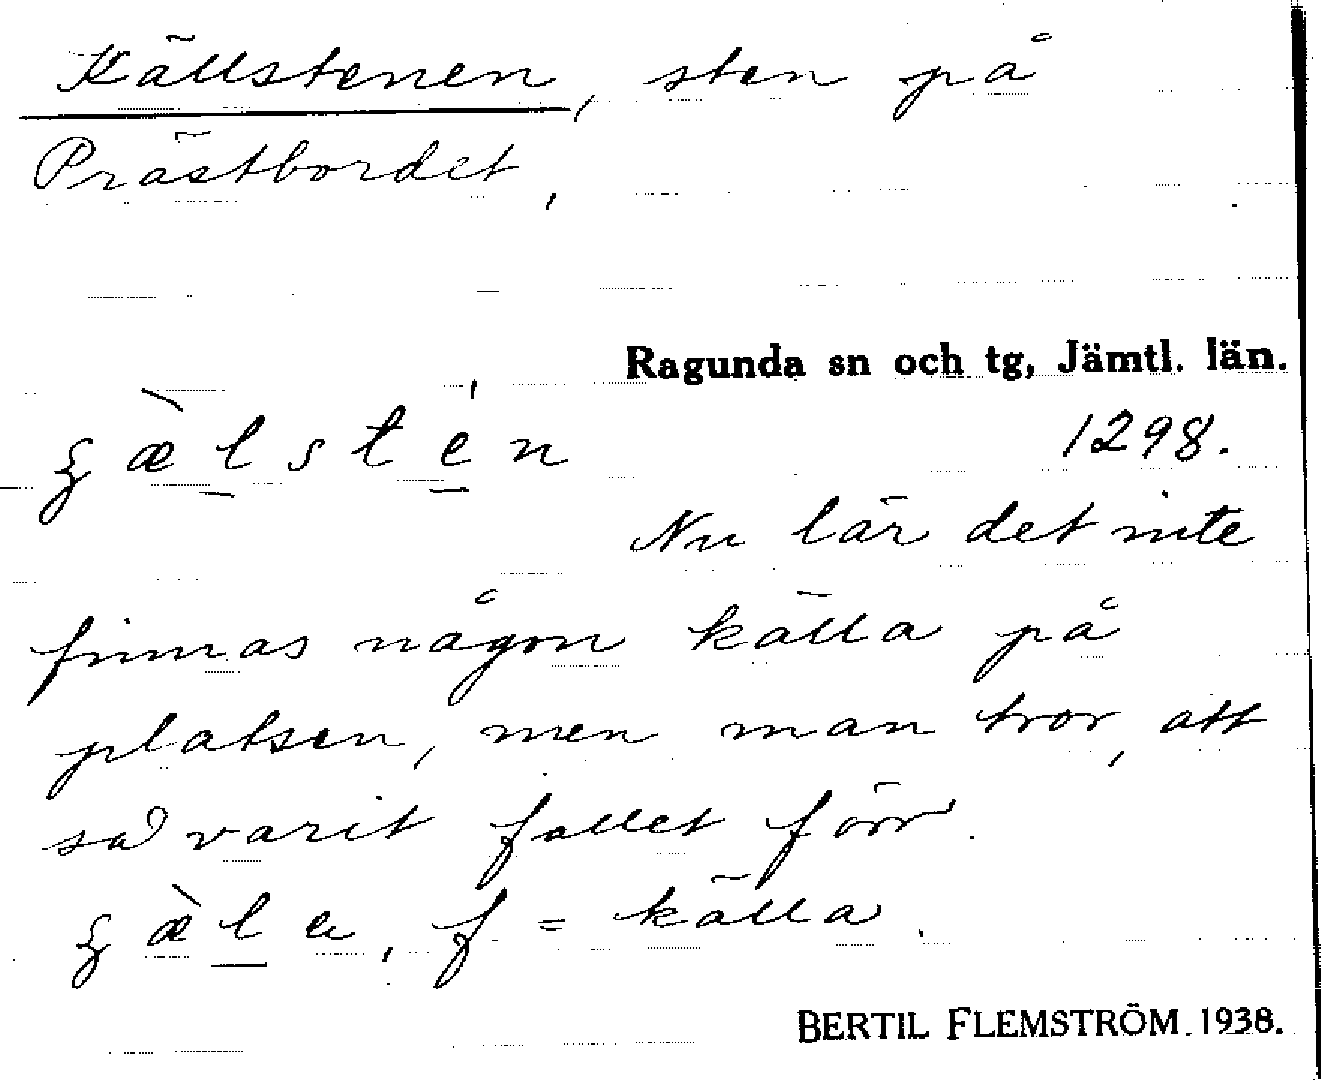 Källstenen, sten på
Prästbordet,
Ragunda sn och tg, Jämtl. län.
ʒæ̀l̲sté̲n 1298.
Nu lär det inte
finnas någon källa på
platsen, men man tror, att
så varit fallet förr.
ʒæ̀l̲a, f = källa.
BERTIL FLEMSTRÖM 1938.